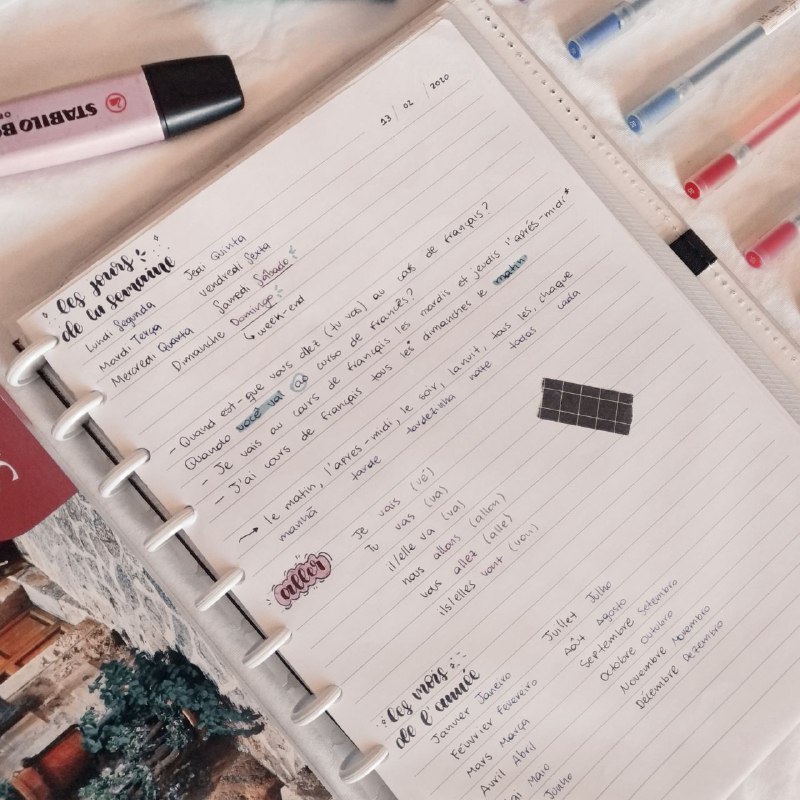 STABILO BO
13 / 02 / 2020
les jours
de la semaine
Lundi Segunda
Mardi Terça
Mercredi Quarta
Jeai Quinta
Vendredi Sexta
Samedi Sábado
Dimanche Domingo
↳ week-end
- Quand est-que vous allez (tu vas) au cas de français?
Quando você vai ao curso de francês?
- Je vais au cours de français les mardis et jeudis l'après-midi*
- J'ai cours de français tous les dimanches le matin
→ le matin, l'après-midi, le soir, la nuit, tous les, chaque
manhã tarde tardezinha noite todos cada
aller
Je vais (vé)
Tu vas (va)
il/elle va (va)
nous allons (allon)
vous allez (allê)
ils/elles vont (von)
les mois
de l'année
Janvier Janeiro
Feuvrier Fevereiro
Mars Março
Avril Abril
ai Maio
Junho
Juillet Julho
Aôut Agosto
Septembre Setembro
Octobre Outubro
Novembre Novembro
Décembre Dezembro